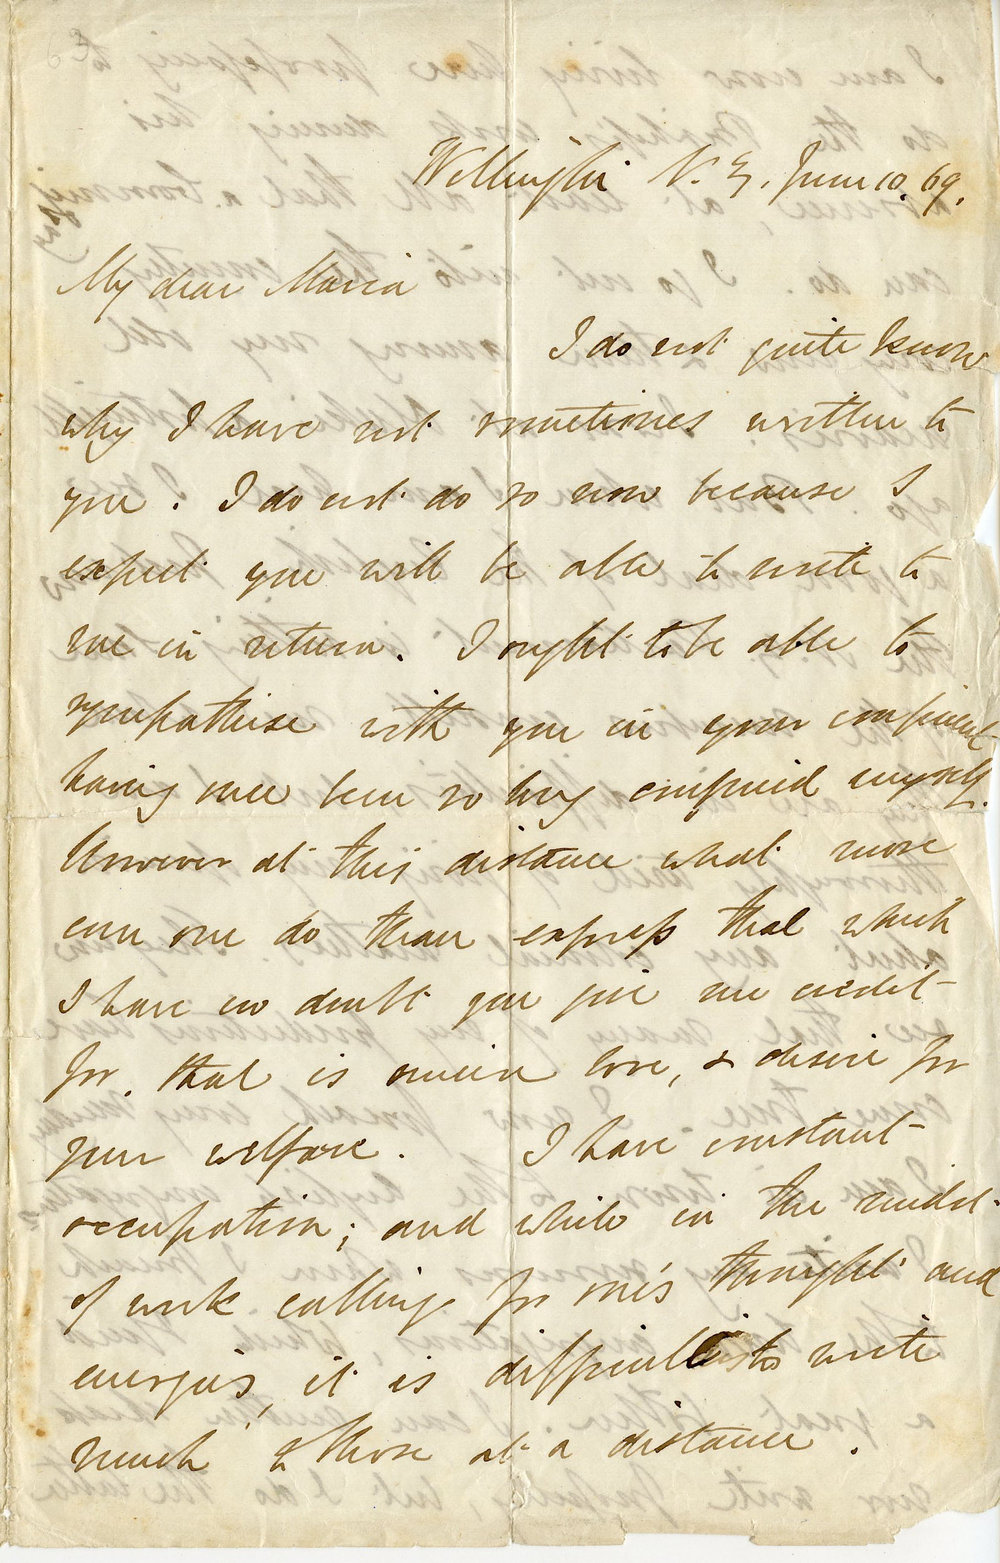 63
Wellington N.Z. June 10. 69.
My dear Maria
I do not quite know
why I have not sometimes written to
you. I do not do so now because I
expect you will be able to write to
me in return. I ought to be able to
sympathise with you in your confinemt
having once been so long confined myself.
However at this distance what more
can one do than express that which
I have no doubt you give me credit
for, that is sincere love, & desire for
your welfare. I have constant
occupation; and while in the midst
of work calling for one's thought and
energies, it is difficult to write
much to those at a distance.